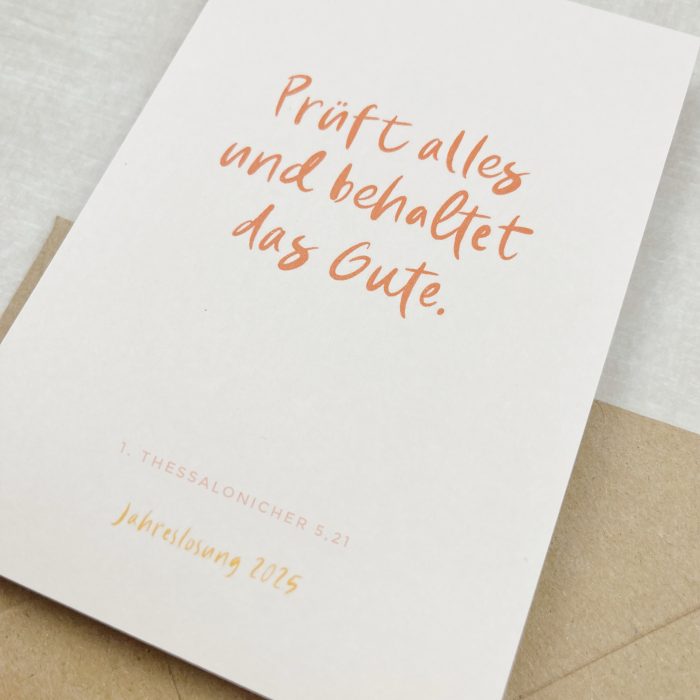 Prüft alles
und behaltet
das Gute.
1. THESSALONICHER 5,21
Jahreslosung 2025